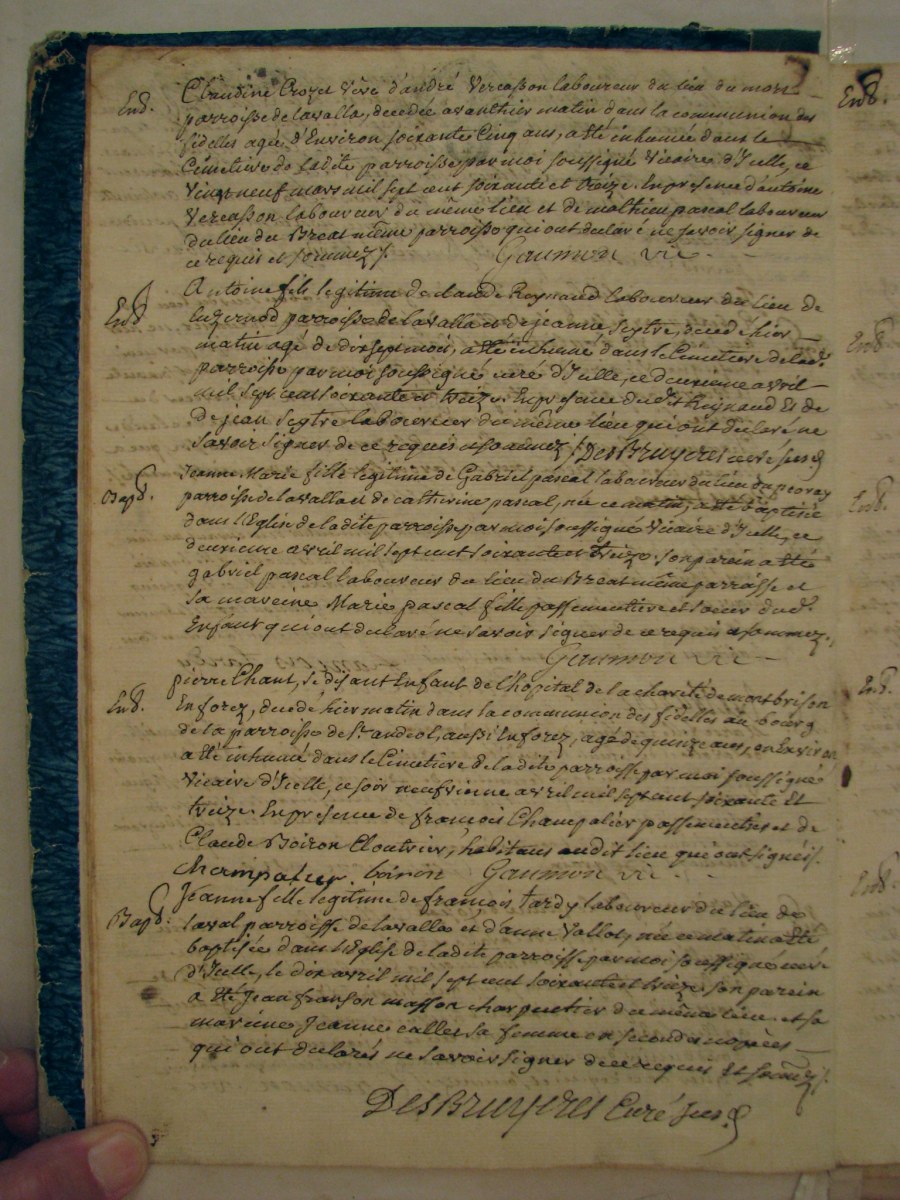 End.
Claudine Crozet vêve d'andré Vercasson laboureur du lieu du
parroisse de lavalla, decedée avanthier matin dans la communion des
fidelles agée d'Environ soixante Cinq ans, a été inhumée dans le
Cimetiere de ladite parroisse par moi soussigné vicaire d'Icelle, ce
vingt neuf mars mil sept cent soixante et treize. En presence d'antoine
Vercasson laboureur du même lieu et de mathieu pascal laboureur
du lieu du Breat même parroisse qui ont declaré ne savoir signer de
ce requis et sommez.
Gaumon vic
End
Antoine fils legitime de claude Reynaud laboureur du lieu de
parroisse de lavalla et de jeanne seytre, decedé hier
matin agé de dix sept mois, a été inhumé dans le Cimetiere de lad.
parroisse par moi soussigné curé d'Icelle, ce deuxieme avril
mil sept cent soixante et treize. En presence dud. Reynaud Et de
de jean seytre laboureur du même lieu qui ont declaré ne
savoir signer de ce requis et sommez. DesBruyeres curé
Bap.
Jeanne Marie fille legitime de Gabriel pascal laboureur du lieu
parroisse de lavalla et de catherine pascal, née ce matin, a été baptisée
dans l'Eglise de ladite parroisse par moi soussigné vicaire d'Icelle, ce
deuxieme avril mil sept cent soixante et treize. son parein a été
gabriel pascal laboureur du lieu du Breat même parroisse et
sa mareine Marie pascal fille passementiere et soeur dud.
Enfant qui ont declaré ne savoir signer de ce requis et sommez.
Gaumon vic
End.
pierre Chant, se disant Enfant de l'hopital de la charité de montbrison
En forez, decedé hier matin dans la communion des fidelles au bourg
de la parroisse de St andeol, aussi En forez, agé de quinze ans, ou Environ
a été inhumé dans le Cimetiere de ladite parroisse par moi soussigné
vicaire d'Icelle, ce soir neufvieme avril mil sept cent soixante Et
treize. En presence de françois Champalier passementier et de
Claude Boiron Cloutrier, habitans audit lieu qui ont signéis.
boiron Gaumon vic
Bap.
Jeanne fille legitime de françois tardy laboureur du lieu de
laval parroisse de lavalla et d'anne Vallot, née ce matin a été
baptisée dans l'Eglise de ladite parroisse par moi soussigné curé
d'Icelle, le dix avril mil sept cent soixante et treize. son parein
a été Jean franson masson charpentier du même lieu et sa
mareine Jeanne calles sa femme en secondes nopces
qui ont declarés ne savoir signer de ce requis Et sommez.
DesBruyeres Curé
End.
End
End.
End.
End.